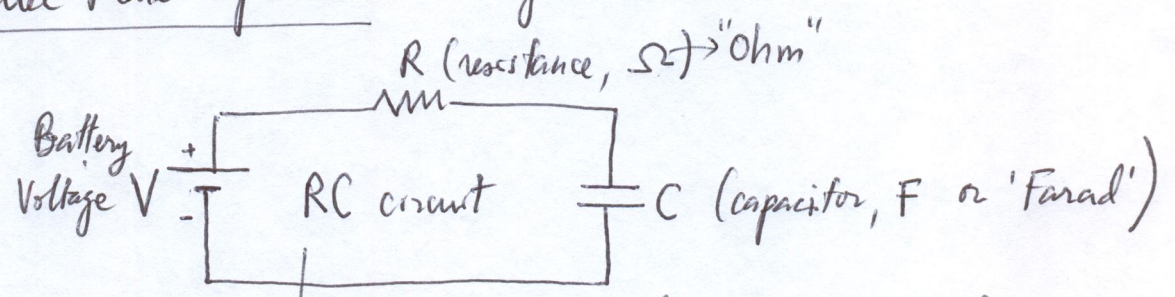 R (resistance, Ω)→"Ohm"
Battery
Voltage V
+
-
RC circuit
C (capacitor, F or 'Farad')